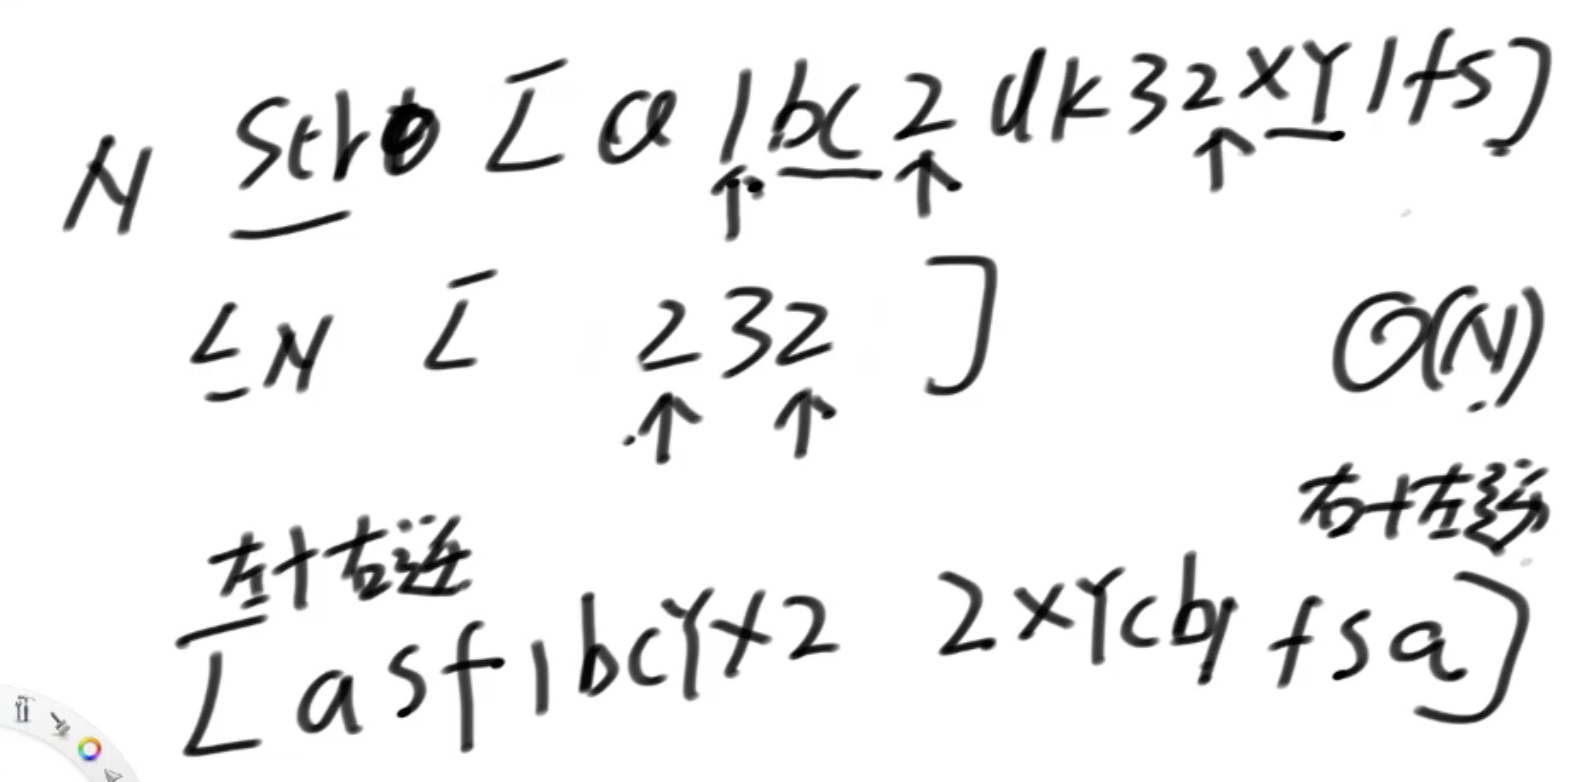 N Str [a1bc2dk32xY1fs]
≤N [ 232 ] O(N)
左+右逆 右+左逆
[asf1bcYx2 2xYcb1fsa]